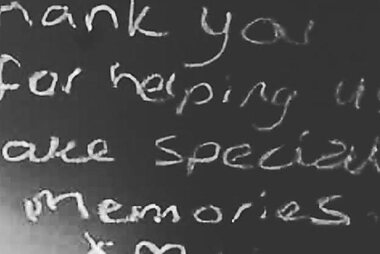 hank you
for helping u
ake special
memories.
x m